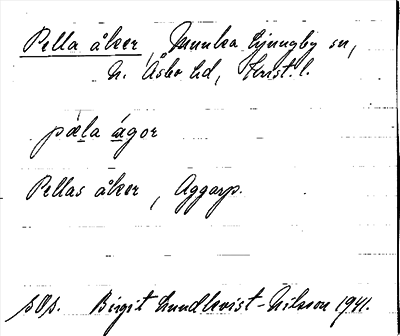 Pella åker, Munka Ljungby sn,
N. Åsbo hd, Krist. l.
pæ̀la ágor
Pellas åker, Aggarp.
sOs. Birgit Lundkvist-Nilsson 1941.